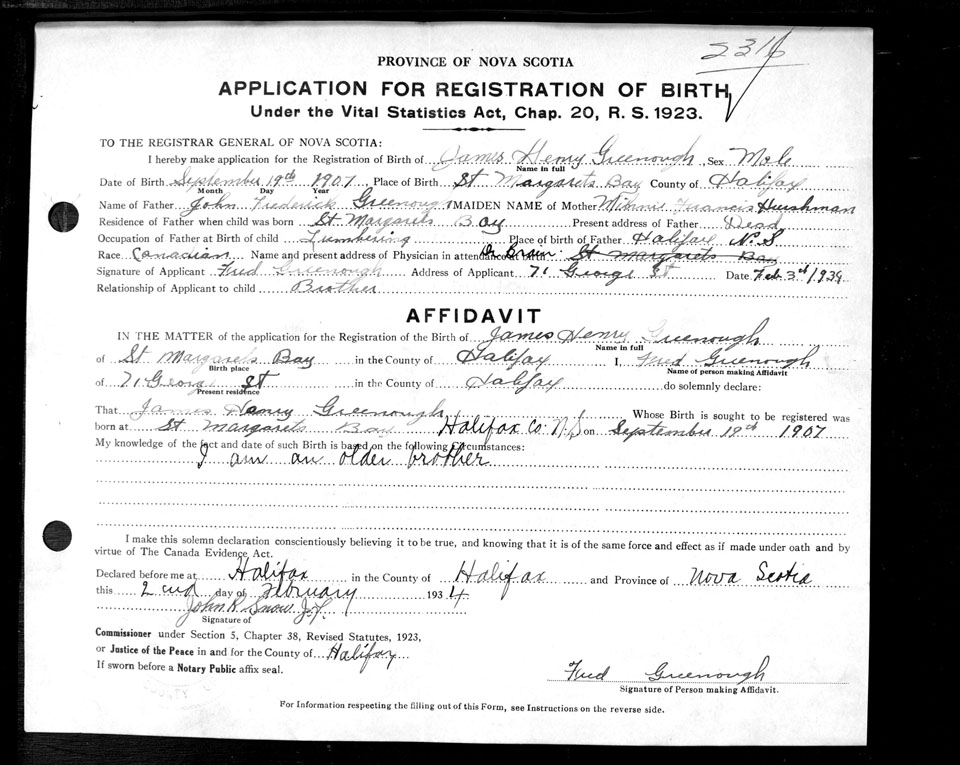 2316
PROVINCE OF NOVA SCOTIA
APPLICATION FOR REGISTRATION OF BIRTH
Under the Vital Statistics Act, Chap. 20, R. S. 1923.
TO THE REGISTRAR GENERAL OF NOVA SCOTIA:
I hereby make application for the Registration of Birth of James Henry Greenough, Sex Male
Name in full
Date of Birth September 19th 1907 Place of Birth St Margarets Bay County of Halifax
Month Day Year
Name of Father John Frederick Greenough MAIDEN NAME of Mother Minnie Francis
Residence of Father when child was born St Margarets Bay Present address of Father Dead
Occupation of Father at Birth of child Lumbering Place of birth of Father Halifax N.S
Race Canadian Name and present address of Physician in attendance St Margarets Bay
Signature of Applicant Fred Greenough Address of Applicant 71 George St Date Feb 3rd 1934
Relationship of Applicant to child Brother
AFFIDAVIT
IN THE MATTER of the application for the Registration of the Birth of James Henry Greenough
Name in full
of St Margarets Bay in the County of Halifax I, Fred Greenough
Birth place Name of person making Affidavit
of 71 George St in the County of Halifax do solemnly declare:
Present residence
That James Henry Greenough Whose Birth is sought to be registered was
born at St Margarets Bay Halifax Co. N.S on September 19th 1907
My knowledge of the fact and date of such Birth is based on the following Circumstances:
I am an older brother
I make this solemn declaration conscientiously believing it to be true, and knowing that it is of the same force and effect as if made under oath and by
virtue of The Canada Evidence Act.
Declared before me at Halifax in the County of Halifax and Province of Nova Scotia
this 2nd day of February 1934
John R Snow J.P.
Signature of
Commissioner under Section 5, Chapter 38, Revised Statutes, 1923,
or Justice of the Peace in and for the County of Halifax
If sworn before a Notary Public affix seal.
Fred Greenough
Signature of Person making Affidavit.
For Information respecting the filling out of this Form, see Instructions on the reverse side.